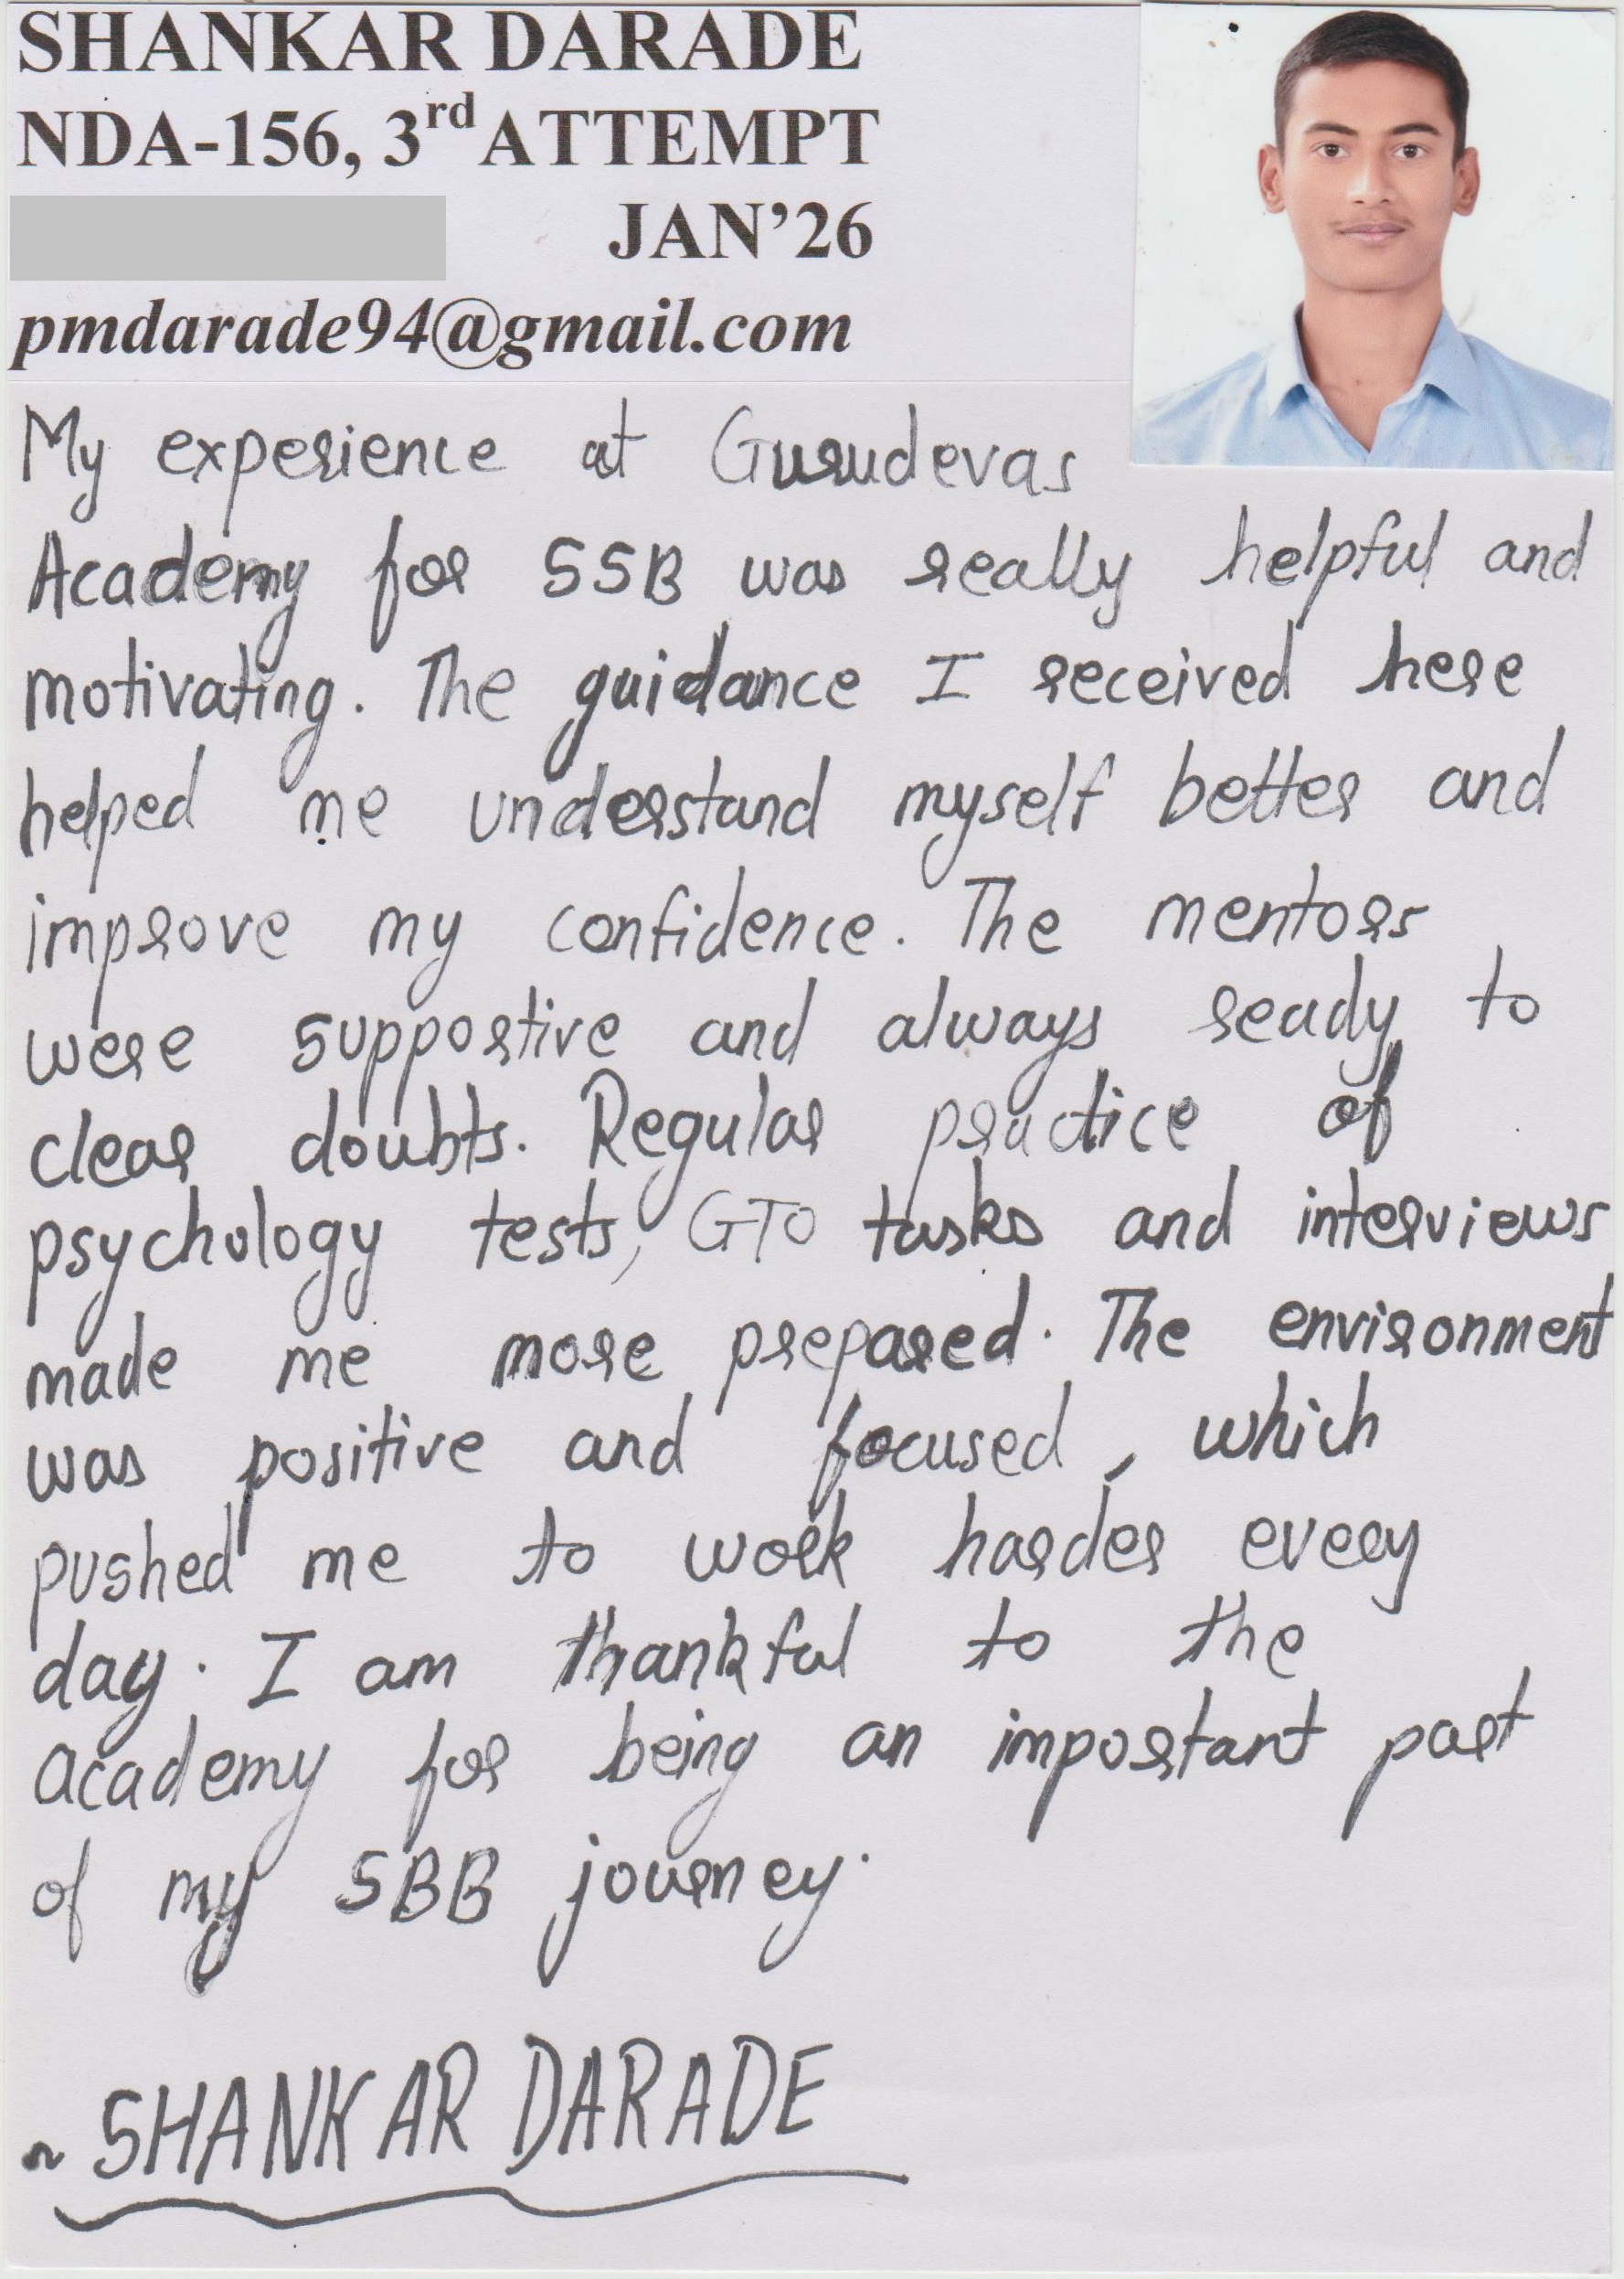 SHANKAR DARADE
NDA-156, 3rd ATTEMPT
JAN'26
pmdarade94@gmail.com
My experience at Gurudevas
Academy for SSB was really helpful and
motivating. The guidance I received here
helped me understand myself better and
improve my confidence. The mentors
were supportive and always ready to
clear doubts. Regular practice of
psychology tests, GTO tasks and interviews
made me more prepared. The environment
was positive and focused, which
pushed me to work harder every
day. I am thankful to the
academy for being an important part
of my SBB journey.
~ SHANKAR DARADE